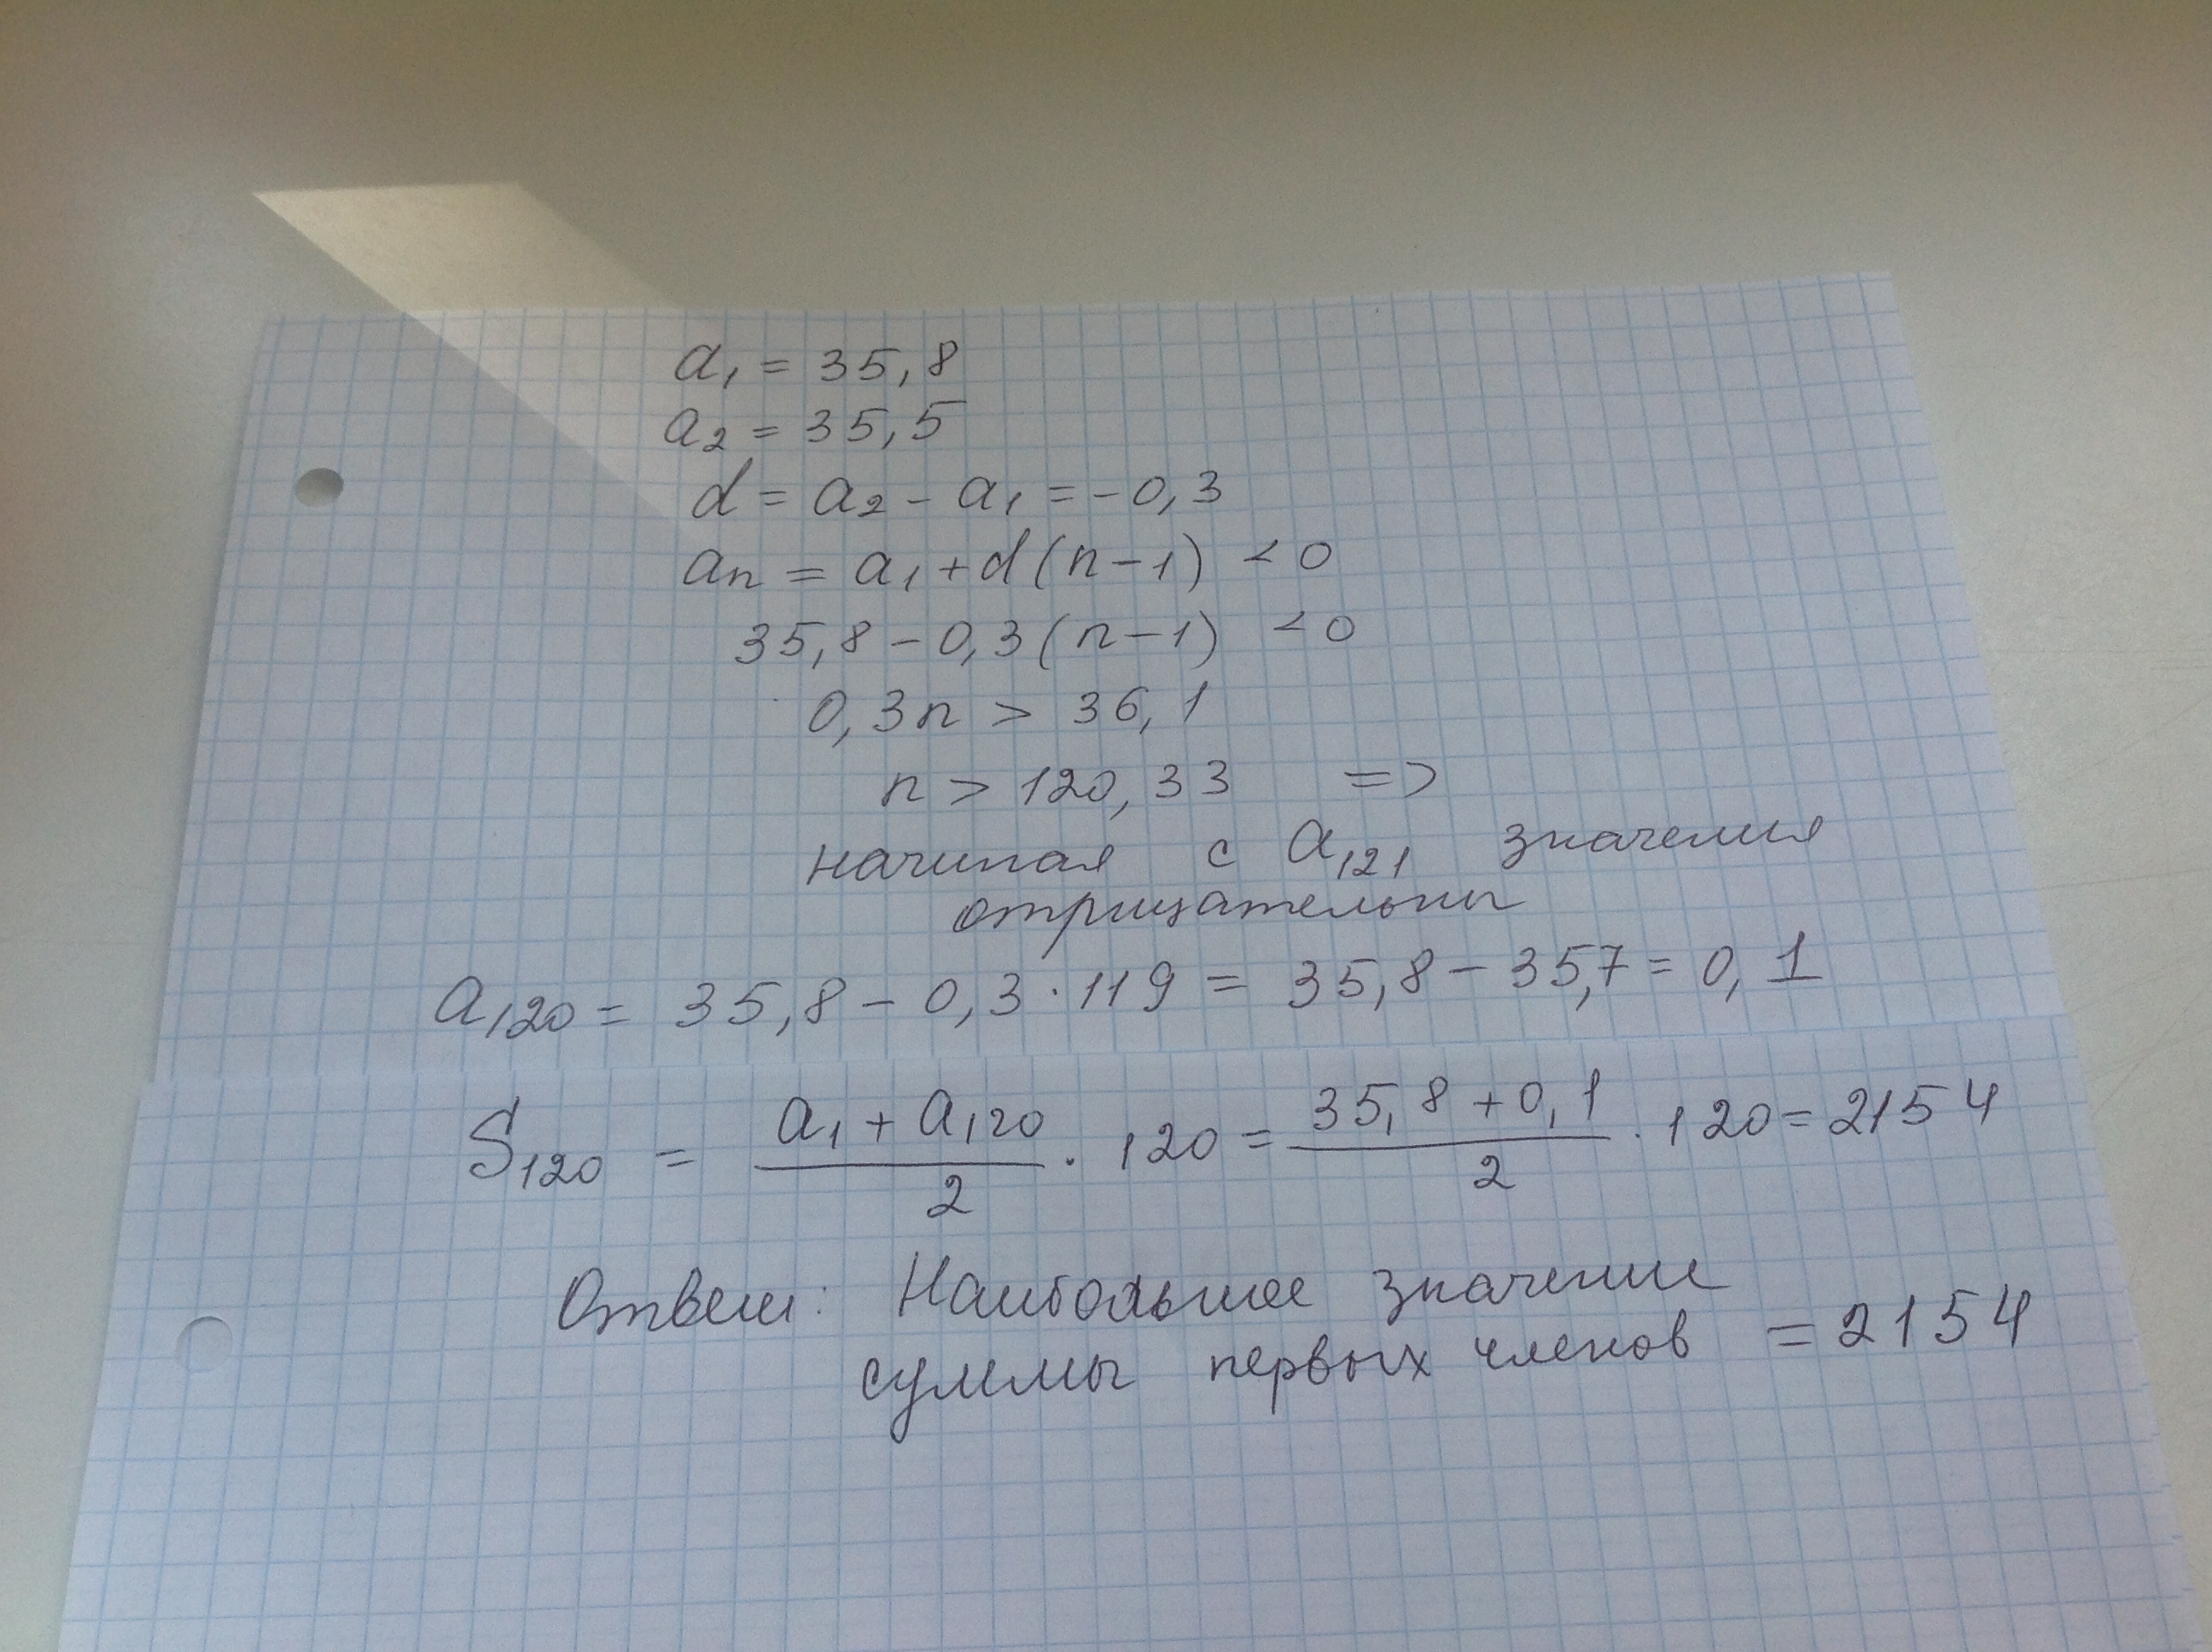 a₁ = 35,8
a₂ = 35,5
d = a₂ - a₁ = -0,3
aₙ = a₁ + d(n-1) < 0
35,8 - 0,3(n-1) < 0
0,3n > 36,1
n > 120,33 =>
начиная с a₁₂₁ значения
отрицательны
a₁₂₀ = 35,8 - 0,3 · 119 = 35,8 - 35,7 = 0,1
S₁₂₀ = (a₁ + a₁₂₀)/2 · 120 = (35,8 + 0,1)/2 · 120 = 2154
Ответ: Наибольшее значение
суммы первых членов = 2154